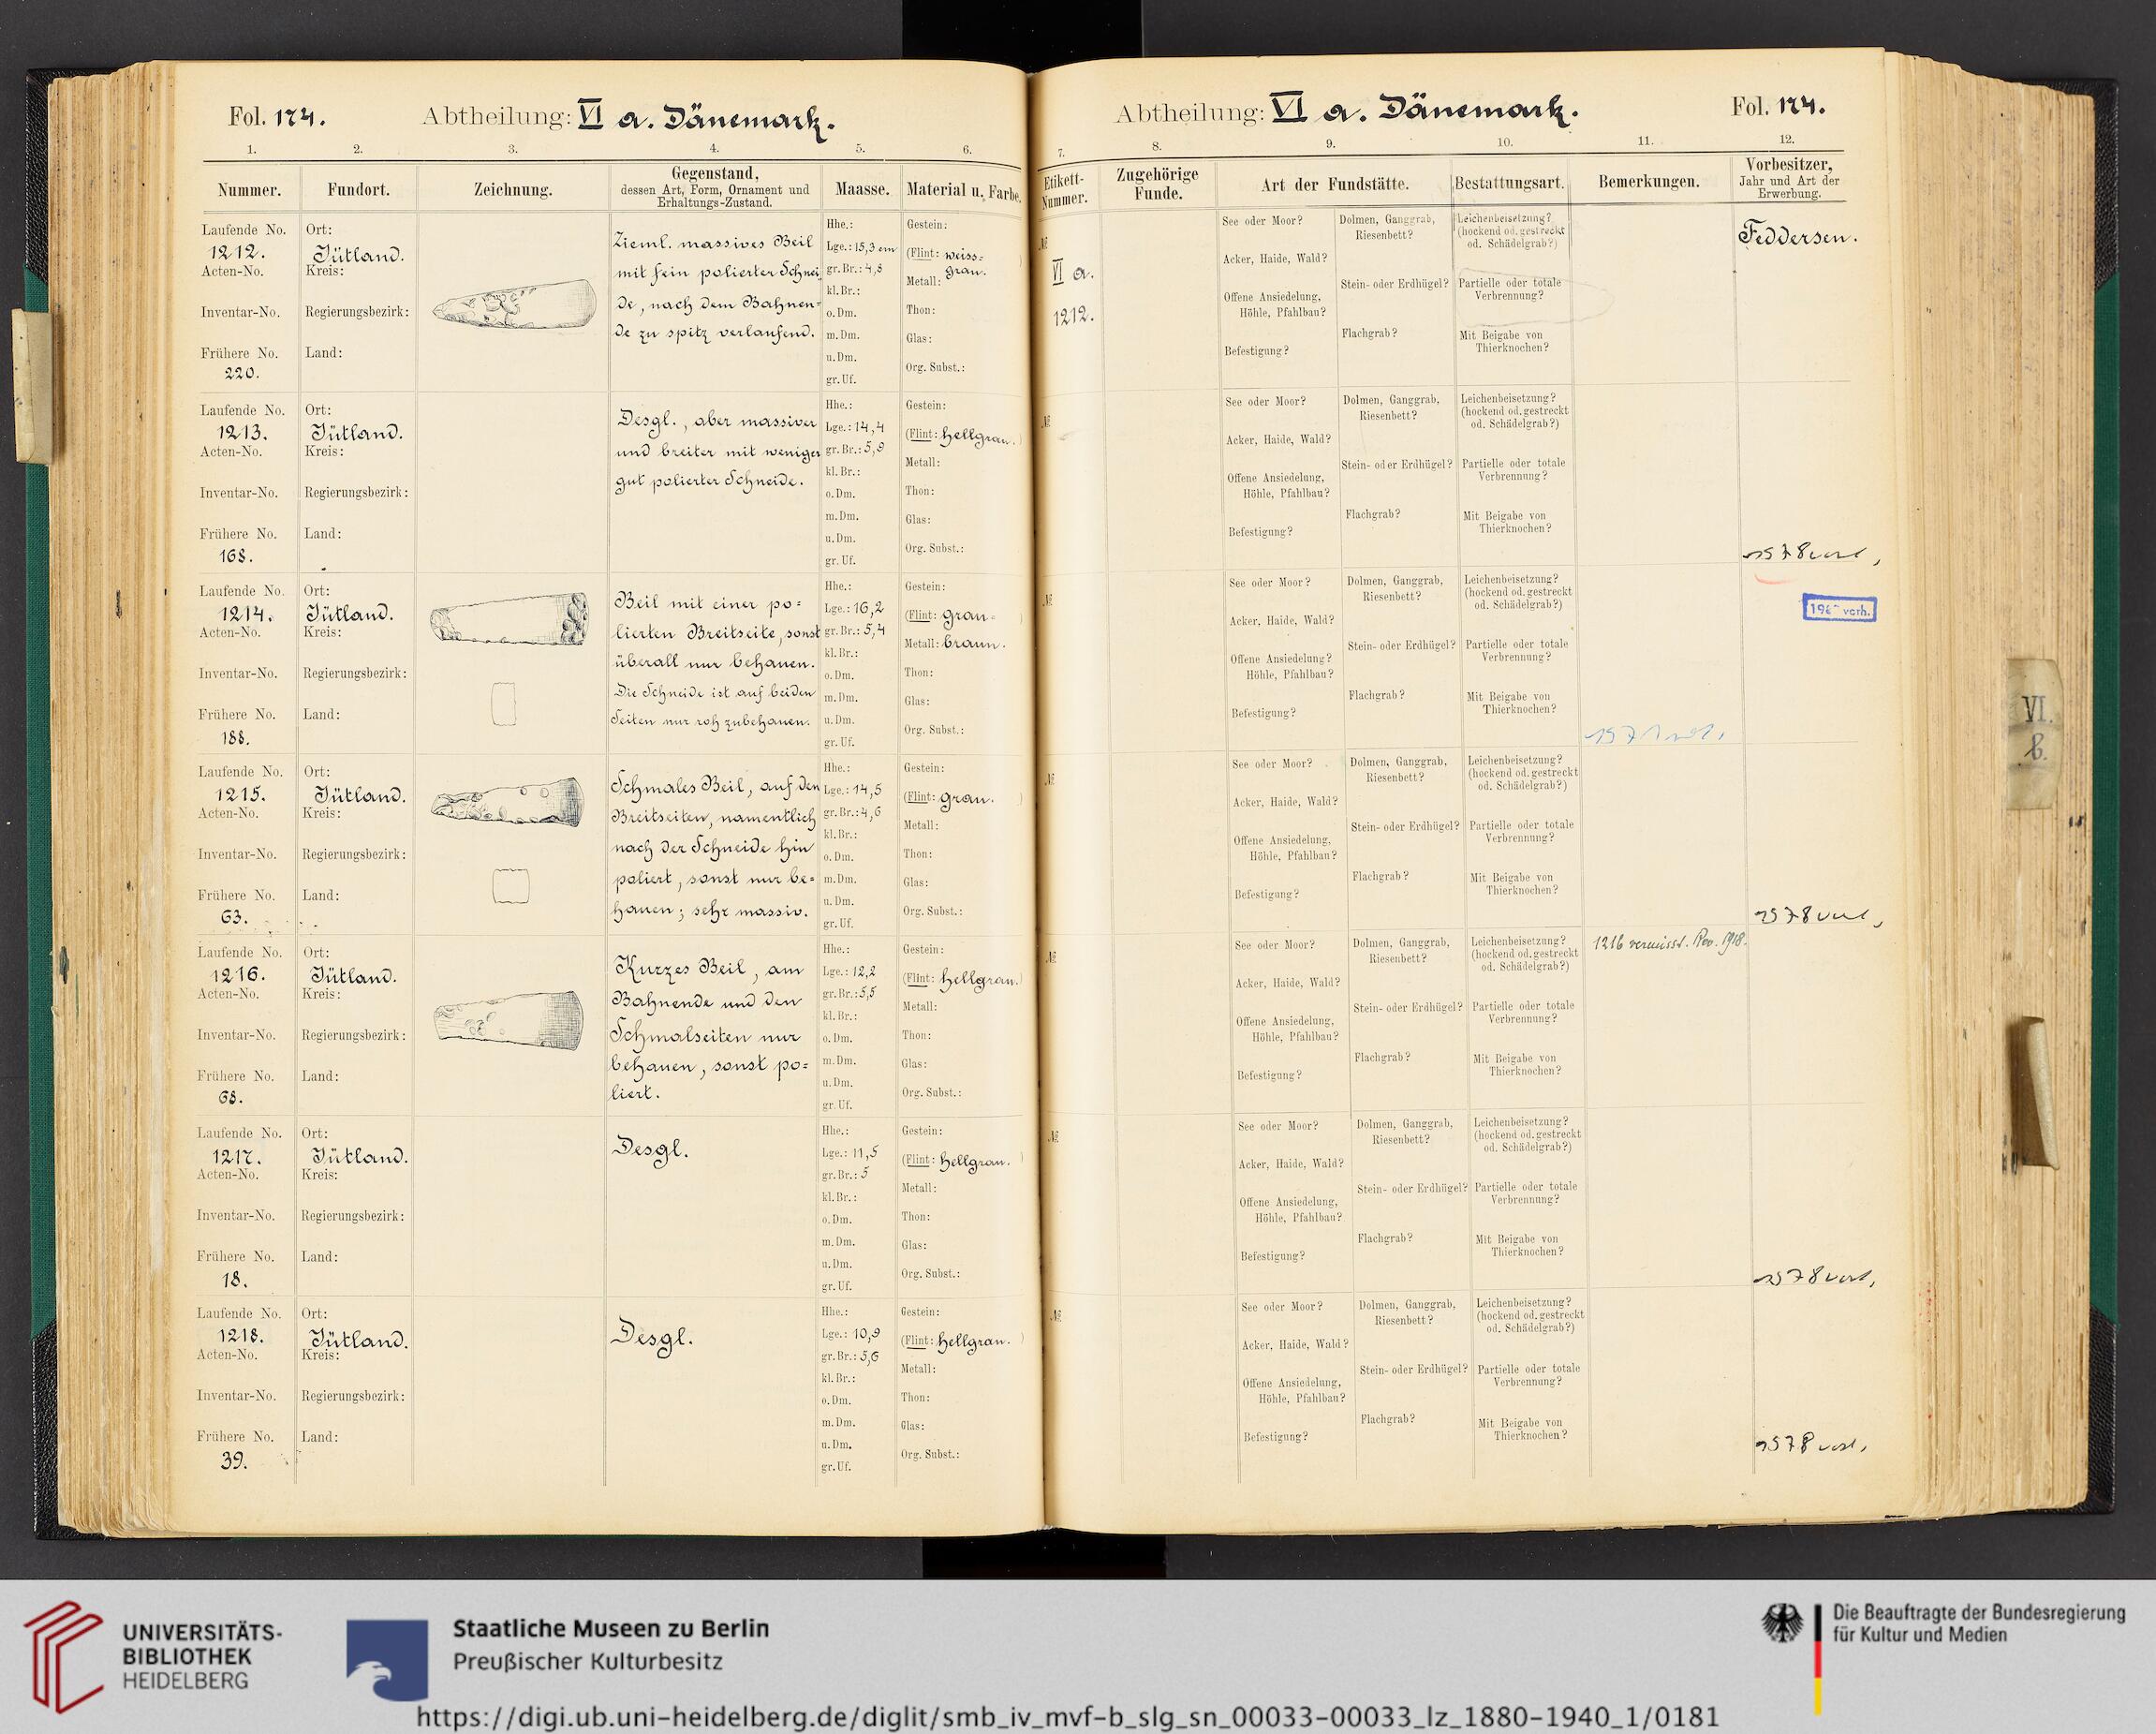 Fol. 174.
Abtheilung: VI a. Dänemark.
1. 2. 3. 4. 5. 6.
Nummer.
Fundort.
Zeichnung.
Gegenstand,
dessen Art, Form, Ornament und
Erhaltungs-Zustand.
Maasse.
Material u. Farbe.
Laufende No.
1212.
Acten-No.
Inventar-No.
Frühere No.
220.
Ort:
Jütland.
Kreis:
Regierungsbezirk:
Land:
Zieml. massives Beil
mit fein polierter Schnei
de, nach dem Bahnen=
de zu spitz verlaufend.
Hhe.:
Lge.: 15,3 cm
gr. Br.: 4,8
kl. Br.:
o. Dm.
m. Dm.
u. Dm.
gr. Uf.
Gestein:
(Flint: weiss=
grau. )
Metall:
Thon:
Glas:
Org. Subst.:
Laufende No.
1213.
Acten-No.
Inventar-No.
Frühere No.
168.
Ort:
Jütland.
Kreis:
Regierungsbezirk:
Land:
Desgl., aber massiver
und breiter mit weniger
gut polierter Schneide.
Hhe.:
Lge.: 14,4
gr. Br.: 5,9
kl. Br.:
o. Dm.
m. Dm.
u. Dm.
gr. Uf.
Gestein:
(Flint: hellgrau. )
Metall:
Thon:
Glas:
Org. Subst.:
Laufende No.
1214.
Acten-No.
Inventar-No.
Frühere No.
188.
Ort:
Jütland.
Kreis:
Regierungsbezirk:
Land:
Beil mit einer po=
lierten Breitseite, sonst
überall nur behauen.
Die Schneide ist auf beiden
Seiten nur roh zubehauen.
Hhe.:
Lge.: 16,2
gr. Br.: 5,4
kl. Br.:
o. Dm.
m. Dm.
u. Dm.
gr. Uf.
Gestein:
(Flint: grau= )
Metall: braun.
Thon:
Glas:
Org. Subst.:
Laufende No.
1215.
Acten-No.
Inventar-No.
Frühere No.
63.
Ort:
Jütland.
Kreis:
Regierungsbezirk:
Land:
Schmales Beil, auf den
Breitseiten, namentlich
nach der Schneide hin
poliert, sonst nur be=
hauen; sehr massiv.
Hhe.:
Lge.: 14,5
gr. Br.: 4,6
kl. Br.:
o. Dm.
m. Dm.
u. Dm.
gr. Uf.
Gestein:
(Flint: grau. )
Metall:
Thon:
Glas:
Org. Subst.:
Laufende No.
1216.
Acten-No.
Inventar-No.
Frühere No.
68.
Ort:
Jütland.
Kreis:
Regierungsbezirk:
Land:
Kurzes Beil, am
Bahnende und den
Schmalseiten nur
behauen, sonst po=
liert.
Hhe.:
Lge.: 12,2
gr. Br.: 5,5
kl. Br.:
o. Dm.
m. Dm.
u. Dm.
gr. Uf.
Gestein:
(Flint: hellgrau. )
Metall:
Thon:
Glas:
Org. Subst.:
Laufende No.
1217.
Acten-No.
Inventar-No.
Frühere No.
18.
Ort:
Jütland.
Kreis:
Regierungsbezirk:
Land:
Desgl.
Hhe.:
Lge.: 11,5
gr. Br.: 5
kl. Br.:
o. Dm.
m. Dm.
u. Dm.
gr. Uf.
Gestein:
(Flint: hellgrau. )
Metall:
Thon:
Glas:
Org. Subst.:
Laufende No.
1218.
Acten-No.
Inventar-No.
Frühere No.
39.
Ort:
Jütland.
Kreis:
Regierungsbezirk:
Land:
Desgl.
Hhe.:
Lge.: 10,9
gr. Br.: 5,6
kl. Br.:
o. Dm.
m. Dm.
u. Dm.
gr. Uf.
Gestein:
(Flint: hellgrau. )
Metall:
Thon:
Glas:
Org. Subst.:
Abtheilung: VI a. Dänemark.
Fol. 174.
7. 8. 9. 10. 11. 12.
Etikett-
Nummer.
Zugehörige
Funde.
Art der Fundstätte.
Bestattungsart.
Bemerkungen.
Vorbesitzer,
Jahr und Art der
Erwerbung.
№
VI a.
1212.
See oder Moor?
Acker, Haide, Wald?
Offene Ansiedelung,
Höhle, Pfahlbau?
Befestigung?
Dolmen, Ganggrab,
Riesenbett?
Stein- oder Erdhügel?
Flachgrab?
Leichenbeisetzung?
(hockend od. gestreckt
od. Schädelgrab?)
Partielle oder totale
Verbrennung?
Mit Beigabe von
Thierknochen?
Feddersen.
№
See oder Moor?
Acker, Haide, Wald?
Offene Ansiedelung,
Höhle, Pfahlbau?
Befestigung?
Dolmen, Ganggrab,
Riesenbett?
Stein- oder Erdhügel?
Flachgrab?
Leichenbeisetzung?
(hockend od. gestreckt
od. Schädelgrab?)
Partielle oder totale
Verbrennung?
Mit Beigabe von
Thierknochen?
1978
№
See oder Moor?
Acker, Haide, Wald?
Offene Ansiedelung?
Höhle, Pfahlbau?
Befestigung?
Dolmen, Ganggrab,
Riesenbett?
Stein- oder Erdhügel?
Flachgrab?
Leichenbeisetzung?
(hockend od. gestreckt
od. Schädelgrab?)
Partielle oder totale
Verbrennung?
Mit Beigabe von
Thierknochen?
vorh.
№
See oder Moor?
Acker, Haide, Wald?
Offene Ansiedelung,
Höhle, Pfahlbau?
Befestigung?
Dolmen, Ganggrab,
Riesenbett?
Stein- oder Erdhügel?
Flachgrab?
Leichenbeisetzung?
(hockend od. gestreckt
od. Schädelgrab?)
Partielle oder totale
Verbrennung?
Mit Beigabe von
Thierknochen?
1978
№
See oder Moor?
Acker, Haide, Wald?
Offene Ansiedelung,
Höhle, Pfahlbau?
Befestigung?
Dolmen, Ganggrab,
Riesenbett?
Stein- oder Erdhügel?
Flachgrab?
Leichenbeisetzung?
(hockend od. gestreckt
od. Schädelgrab?)
Partielle oder totale
Verbrennung?
Mit Beigabe von
Thierknochen?
1216 vermisst. Rev. 1918.
№
See oder Moor?
Acker, Haide, Wald?
Offene Ansiedelung,
Höhle, Pfahlbau?
Befestigung?
Dolmen, Ganggrab,
Riesenbett?
Stein- oder Erdhügel?
Flachgrab?
Leichenbeisetzung?
(hockend od. gestreckt
od. Schädelgrab?)
Partielle oder totale
Verbrennung?
Mit Beigabe von
Thierknochen?
1978
№
See oder Moor?
Acker, Haide, Wald?
Offene Ansiedelung,
Höhle, Pfahlbau?
Befestigung?
Dolmen, Ganggrab,
Riesenbett?
Stein- oder Erdhügel?
Flachgrab?
Leichenbeisetzung?
(hockend od. gestreckt
od. Schädelgrab?)
Partielle oder totale
Verbrennung?
Mit Beigabe von
Thierknochen?
1978
VI.
b.
UNIVERSITÄTS-
BIBLIOTHEK
HEIDELBERG
Staatliche Museen zu Berlin
Preußischer Kulturbesitz
Die Beauftragte der Bundesregierung
für Kultur und Medien
https://digi.ub.uni-heidelberg.de/diglit/smb_iv_mvf-b_slg_sn_00033-00033_lz_1880-1940_1/0181